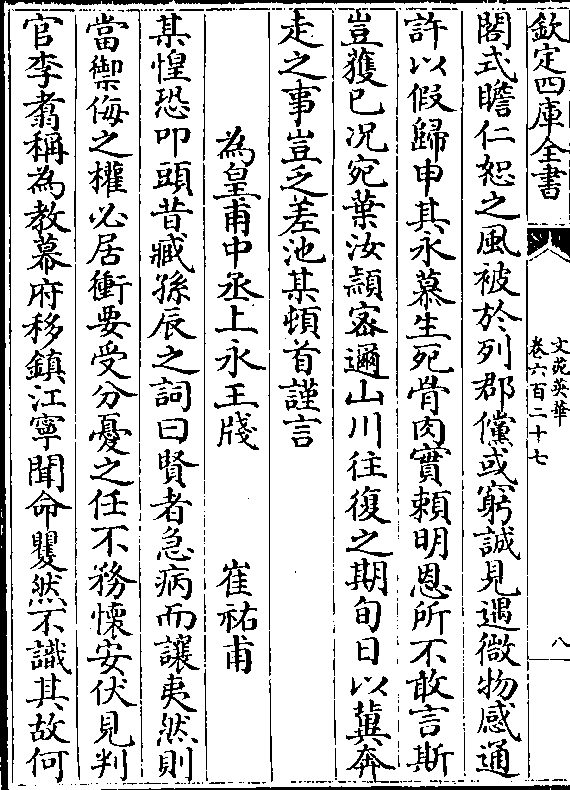 欽定四庫全書
文苑英華
卷六百二十七
八
閣式瞻仁恕之風被於列郡儻或窮誠見遇微物感通
許以假歸申其永慕生死骨肉實賴明恩所不敢言斯
豈獲已况宛葉汝潁密邇山川往復之期旬日以冀奔
走之事豈乏差池某頓首謹言
為皇甫中丞上永王牋 崔祐甫
某惶恐叩頭昔臧孫辰之詞曰賢者急病而讓夷然則
當禦侮之權必居衝要受分憂之任不務懷安伏見判
官李翥稱為教幕府移鎮江寧聞命瞿然不識其故何